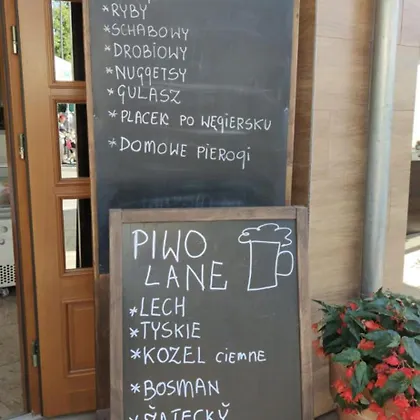 *RYBY
*SCHABOWY
*DROBIOWY
*NUGGETSY
*GULASZ
*PLACEK PO WĘGIERSKU
*DOMOWE PIEROGI
PIWO
LANE
*LECH
*TYSKIE
*KOZEL CIEMNE
*BOSMAN
*ŽATECKÝ